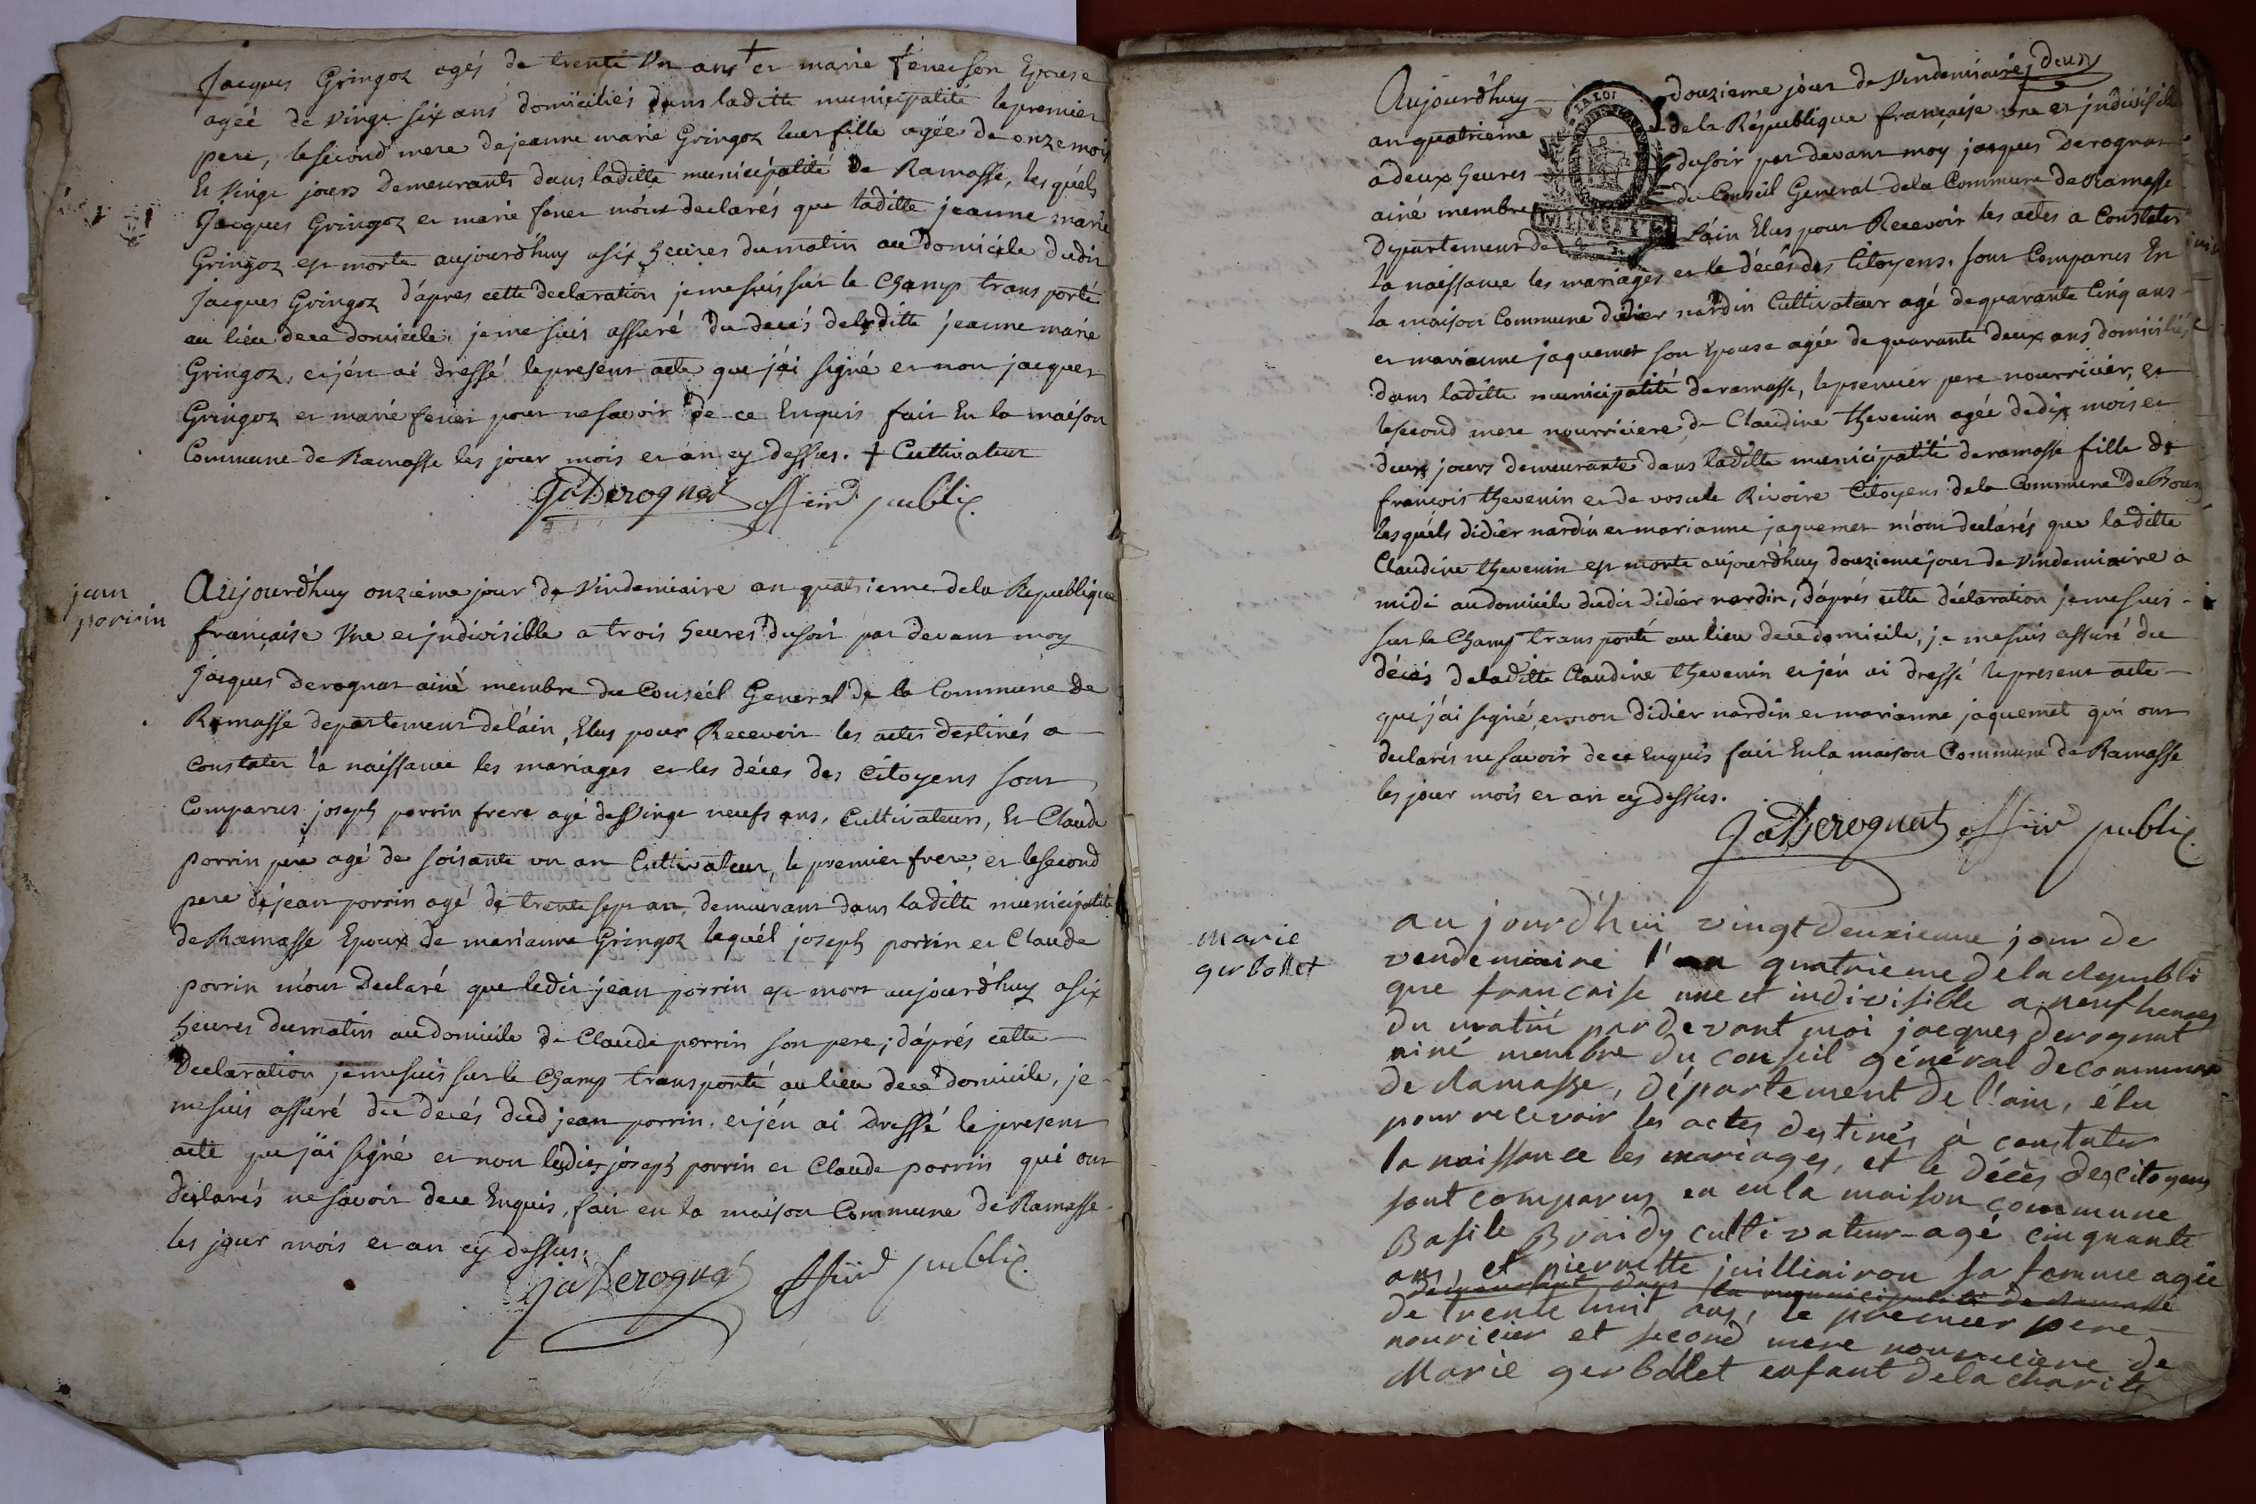 Jacques Gringoz agés de trente Un ans + et marie fener son Epouse
agéé de vingt six ans domiciliés dans laditte municipalité le premier
pere, le second mere de jeanne marie Gringoz leur fille agée de onze mois
Et vingt jours demeurants dans laditte municipalité de Ramasse, les quéls
Jacques Gringoz et marie fener m'ont declarés que laditte jeanne marie
Gringoz est morte aujourd'huy a six heures du matin au domicile dudit
Jacques Gringoz d'apres cette declaration je me suis sur le Champ transporté
au lieu de ce domicile, je me suis assuré du decés de laditte jeanne marie
Gringoz, et j'én ai dressé le present acte que j'ái signé et non jacques
Gringoz et marie fener pour ne savoir de ce Enquis fait En la maison
Commune de Ramasse les jour mois et án cy dessus. + Cultivateur
Ja Derognat officier public
jean
porrin
Aujourd'huy onzieme jour de Vindemiaire an quatrieme de la Republique
française Une et jndivisible a trois heures du soir par devant moy
Jacques derognat ainé membre du Conséél General de la Commune de
Ramasse departement de láin, Elus pour Recevoir les actes destinés a
constater la naissance les mariages et les déces des Citoyens sont
Comparus joseph porrin frere agé de Vingt neufs ans, Cultivateurs, Et Claude
porrin peré agé de soisante un an Cultivateur, le premier frere, et le second
pere de jean porrin agé de trente sept an, demeurant dans laditte municipalité
de Ramasse Epoux de marianne Gringoz lequél joseph porrin et Claude
porrin m'ónt Declaré que ledit jean porrin est mort aujourd'huy a six
heures du matin au domicile de Claude porrin son pere; d'áprés cette
Declaration je me suis sur le Champ transporté au lieu de ce domicile, je
me suis assuré du decés dud jean porrin, et j'én ai Dressé le present
acte que j'ái signé et non lesdits joseph porrin et Claude porrin qui ont
declarés ne savoir de ce Enquis, fait én la maison Commune de Ramasse
les jour mois et an cy dessus.
Ja Derognat officier public
Aujourd'huy douzieme jour de Vindemiaire, deux
LA LOI
an quatrieme de la République française une et jndivisible
a deux heures du soir par devant moy jacques Derognat
ainé membre du Conseil General de la Commune de Ramasse
MINUTE
Departement de Láin Elus pour Recevoir les actes a Constater
la naissance les mariages et le décès des Citoyens. sont Comparus En
la maison Commune didier nardin Cultivateur agé de quarante Cinq ans
et marianne jaquemet son Epouse agée de quarante deux ans domiciliés
dans laditte municipalité de ramasse, le premier pere nourricier, et
le second mere nourriciere de Claudine thevenin agée de dix mois et
deux jours demeurante dans laditte municipalité de ramasse fille de
françois thevenin et de Rivoire Citoyens de la Commune de Bourg
les quéls didier nardin et marianne jaquemet m'ónt declárés que laditte
Claudine thevenin est morte aujourd'huy douzieme jour de Vindemiaire a
midi au domicile dudit Didier nardin, d'áprés cette déclaration je me suis
sur le Champ transporté au lieu de ce domicile, je me suis assuré du
décés de laditte Claudine thevenin et j'én ai dressé le present acte
que j'ai signé, et non didier nardin et marianne jaquemet qui ont
declarés ne savoir de ce Enquis fait En la maison Commune de Ramasse
les jour mois et an cy dessus.
Ja Derognat officier public
marie
gerbollet
aujourd'hui vingt deuxieme jour de
vendemiaire l'an quatrieme de la republi
que francaise une et indivisible a neuf heures
du matin par devant moi jacques derognat
ainé membre du conseil général de commune
de Ramasse, département de l'ain, élu
pour recevoir les actes destinés à constater
la naissance les mariages, et le décès des citoyens
sont comparus en en la maison commune
Basile Braidy cultivateur agé cinquante
ans, et pierrette juillieiron sa femme agée
demeurant dans la municipalité de Ramasse
de trente huit ans, le premier pere
nouricier et second mere nourriciere de
Marie gerbollet enfant de la charité